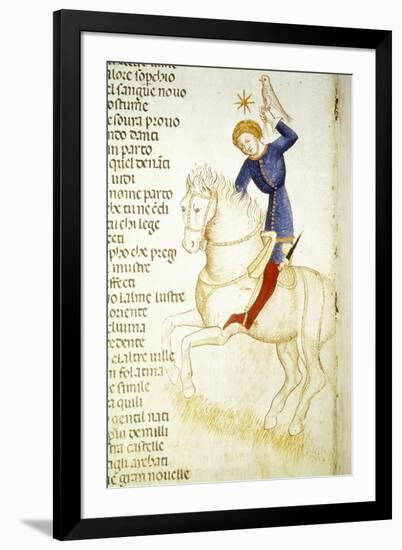 alore sopchio
el sangue nouo
ostume
e soura prouo
ndo danti
n parto
quel denāti
uidi
nome parto
che tu nē di
tu chi lege
ecti
pho che pregi
mustre
ffecti
o lalme lustre
oriente
eluina
edente
e laltre uille
n folatina
e simile
a quili
gentil nati
pui de milli
tra castelle
tigli arebati
e gran nouelle